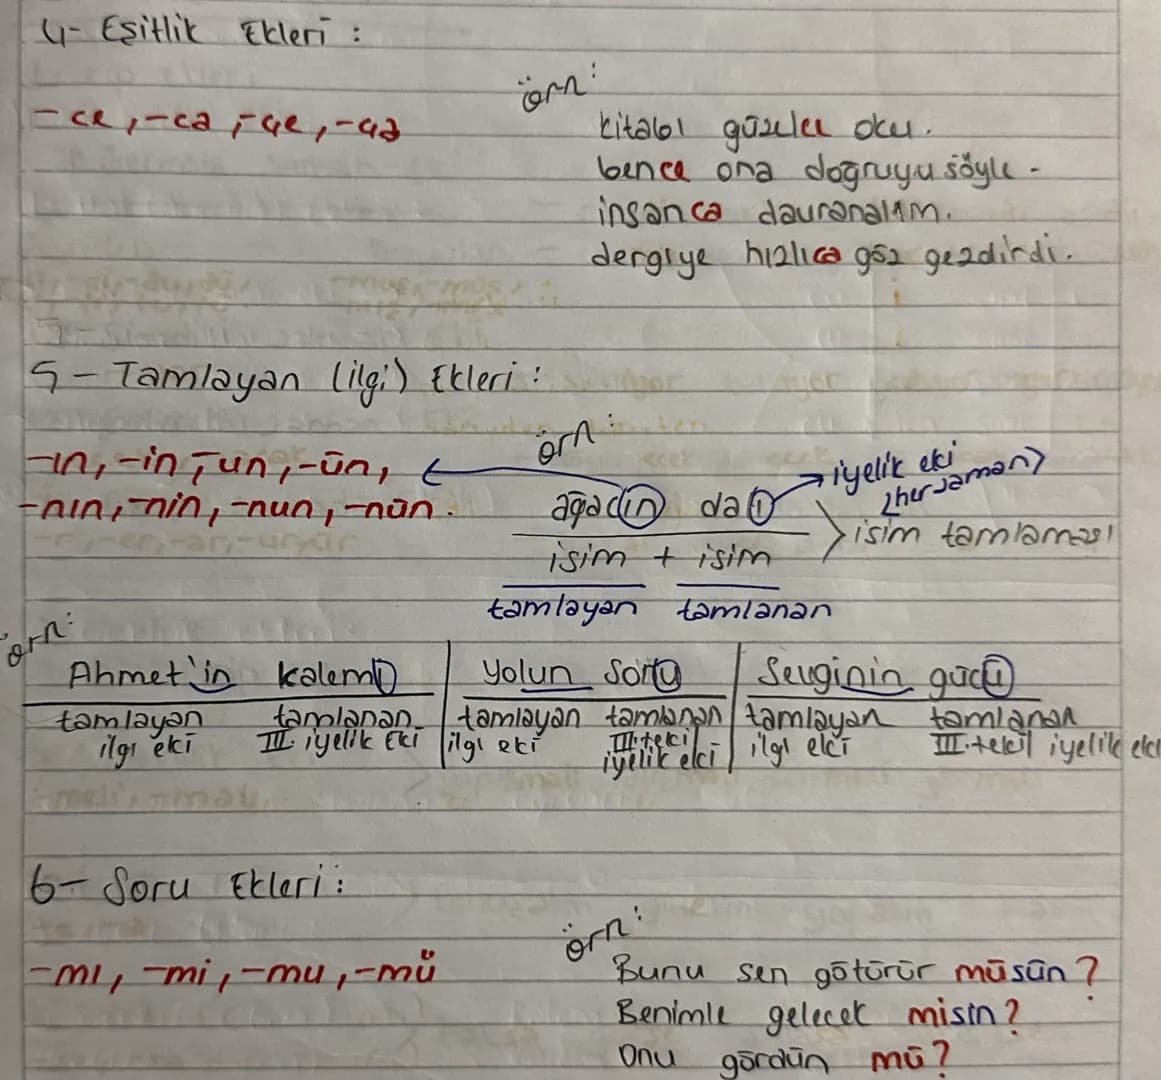 4- Eşitlik Ekleri :
örn:
-ce, -ca, -çe, -ça
kitabı güzelce oku.
bence ona doğruyu söyle.
insanca davranalım.
dergiye hızlıca göz gezdirdi.
5- Tamlayan (ilgi) Ekleri :
örn:
-ın, -in, -un, -ün,
-nın, -nin, -nun, -nün.
ağacın dalı
iyelik eki
(her zaman)
isim tamlaması
isim + isim
tamlayan tamlanan
örn:
Ahmet'in kalemi
tamlayan tamlanan
ilgi eki III. iyelik eki
Yolun Sonu
tamlayan tamlanan
ilgi eki III. tekil
iyelik eki
Sevginin gücü
tamlayan tamlanan
ilgi eki III. tekil iyelik eki
6- Soru Ekleri :
örn:
-mı, -mi, -mu, -mü
Bunu sen götürür müsün?
Benimle gelecek misin?
Onu gördün mü?